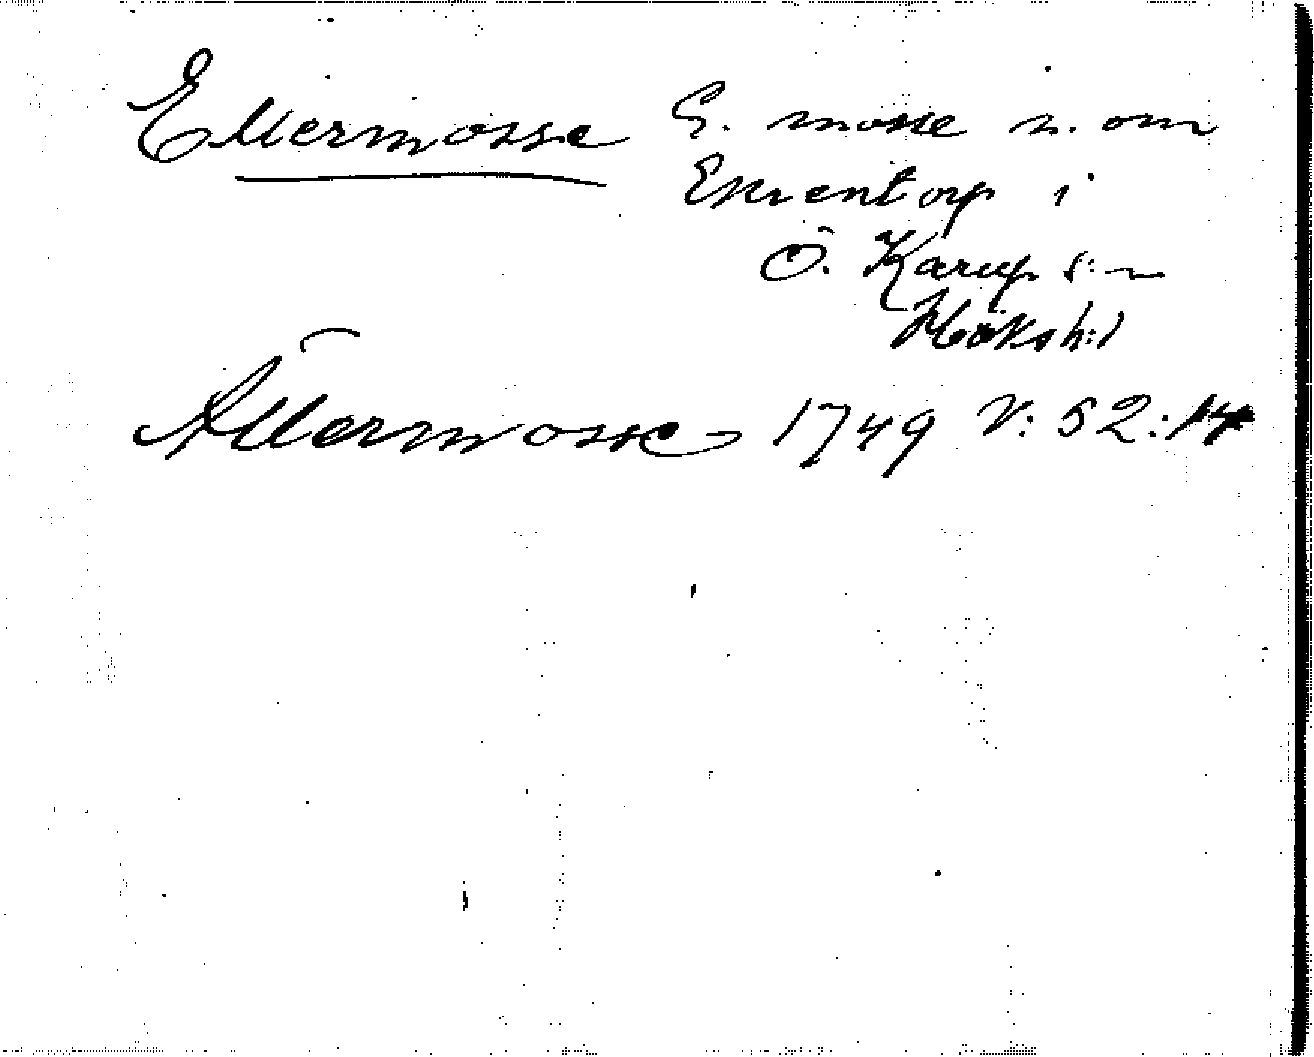 Ellermosse E. mosse n. om
Ehrentorp i
Ö. Karup s:n
Höks h:d
Ällermosse 1749 V: 52:14